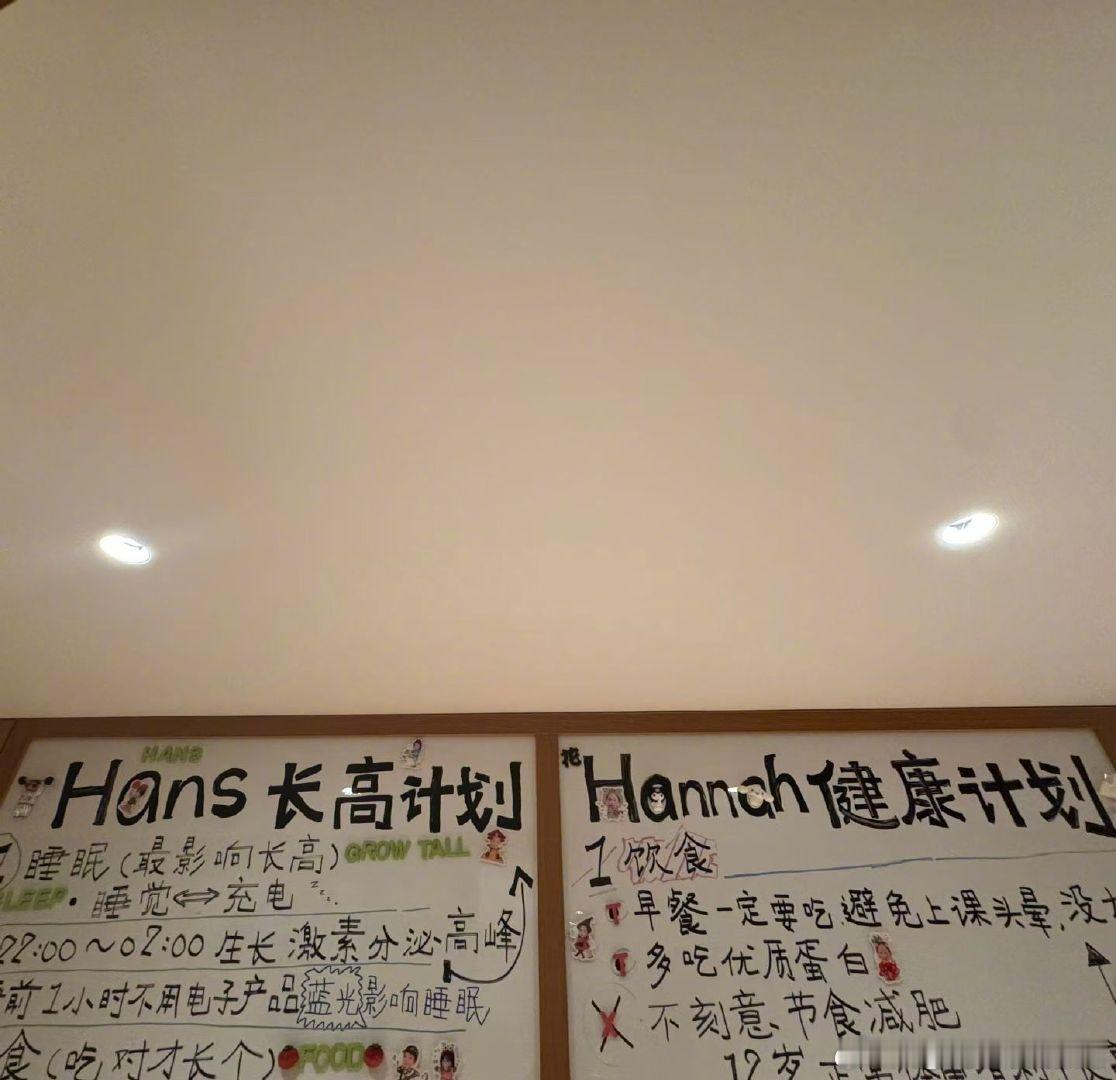 HANS
Hans 长高计划
睡眠(最影响长高) GROW TALL
LEEP • 睡觉⇔充电 zzz
22:00～02:00 生长激素分泌高峰
前1小时不用电子产品 蓝光影响睡眠
食(吃对才长个) FOOD
Hannah 健康计划
1 饮食
早餐一定要吃,避免上课头晕,没
多吃优质蛋白
不刻意节食减肥
12岁